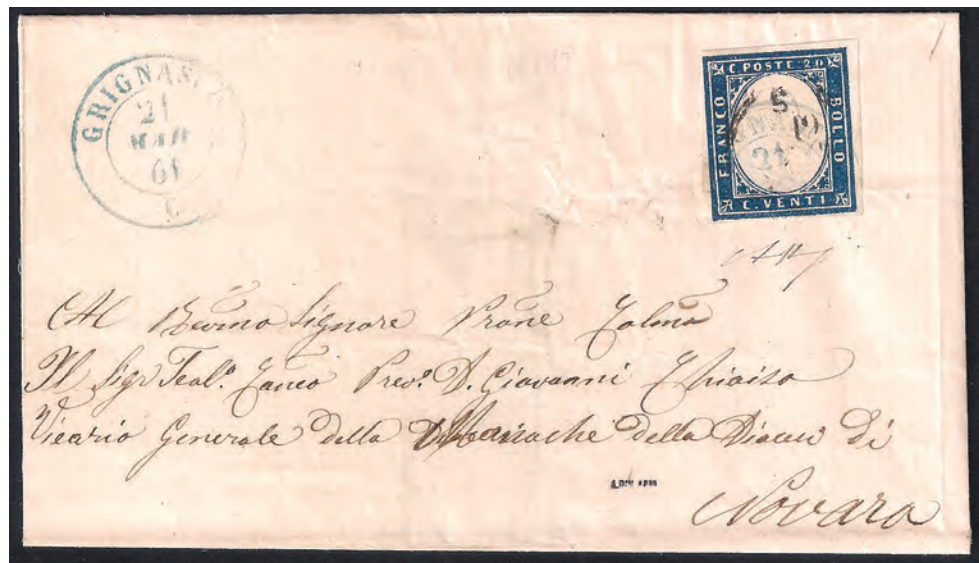 GRIGNAS
21
MAR
61
C. POSTE 20
FRANCO
BOLLO
GNA
21
C. VENTI
Al Revmo Signore Prone Colmo
Il Sigr Teol.o Prev.o D. Giovanni
Vicario Generale delle Monache della Diocesi di
Novara